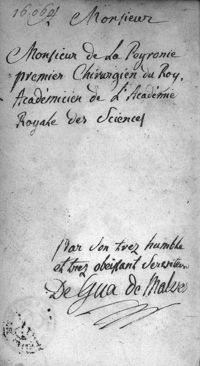 16.060
Monsieur
Monsieur de La Peyronie
premier Chirurgien du Roy,
Académicien de L'Académie
Royale des Sciences
par Son trez humble
et trez obéissant Serviteur
De Gua de Malves